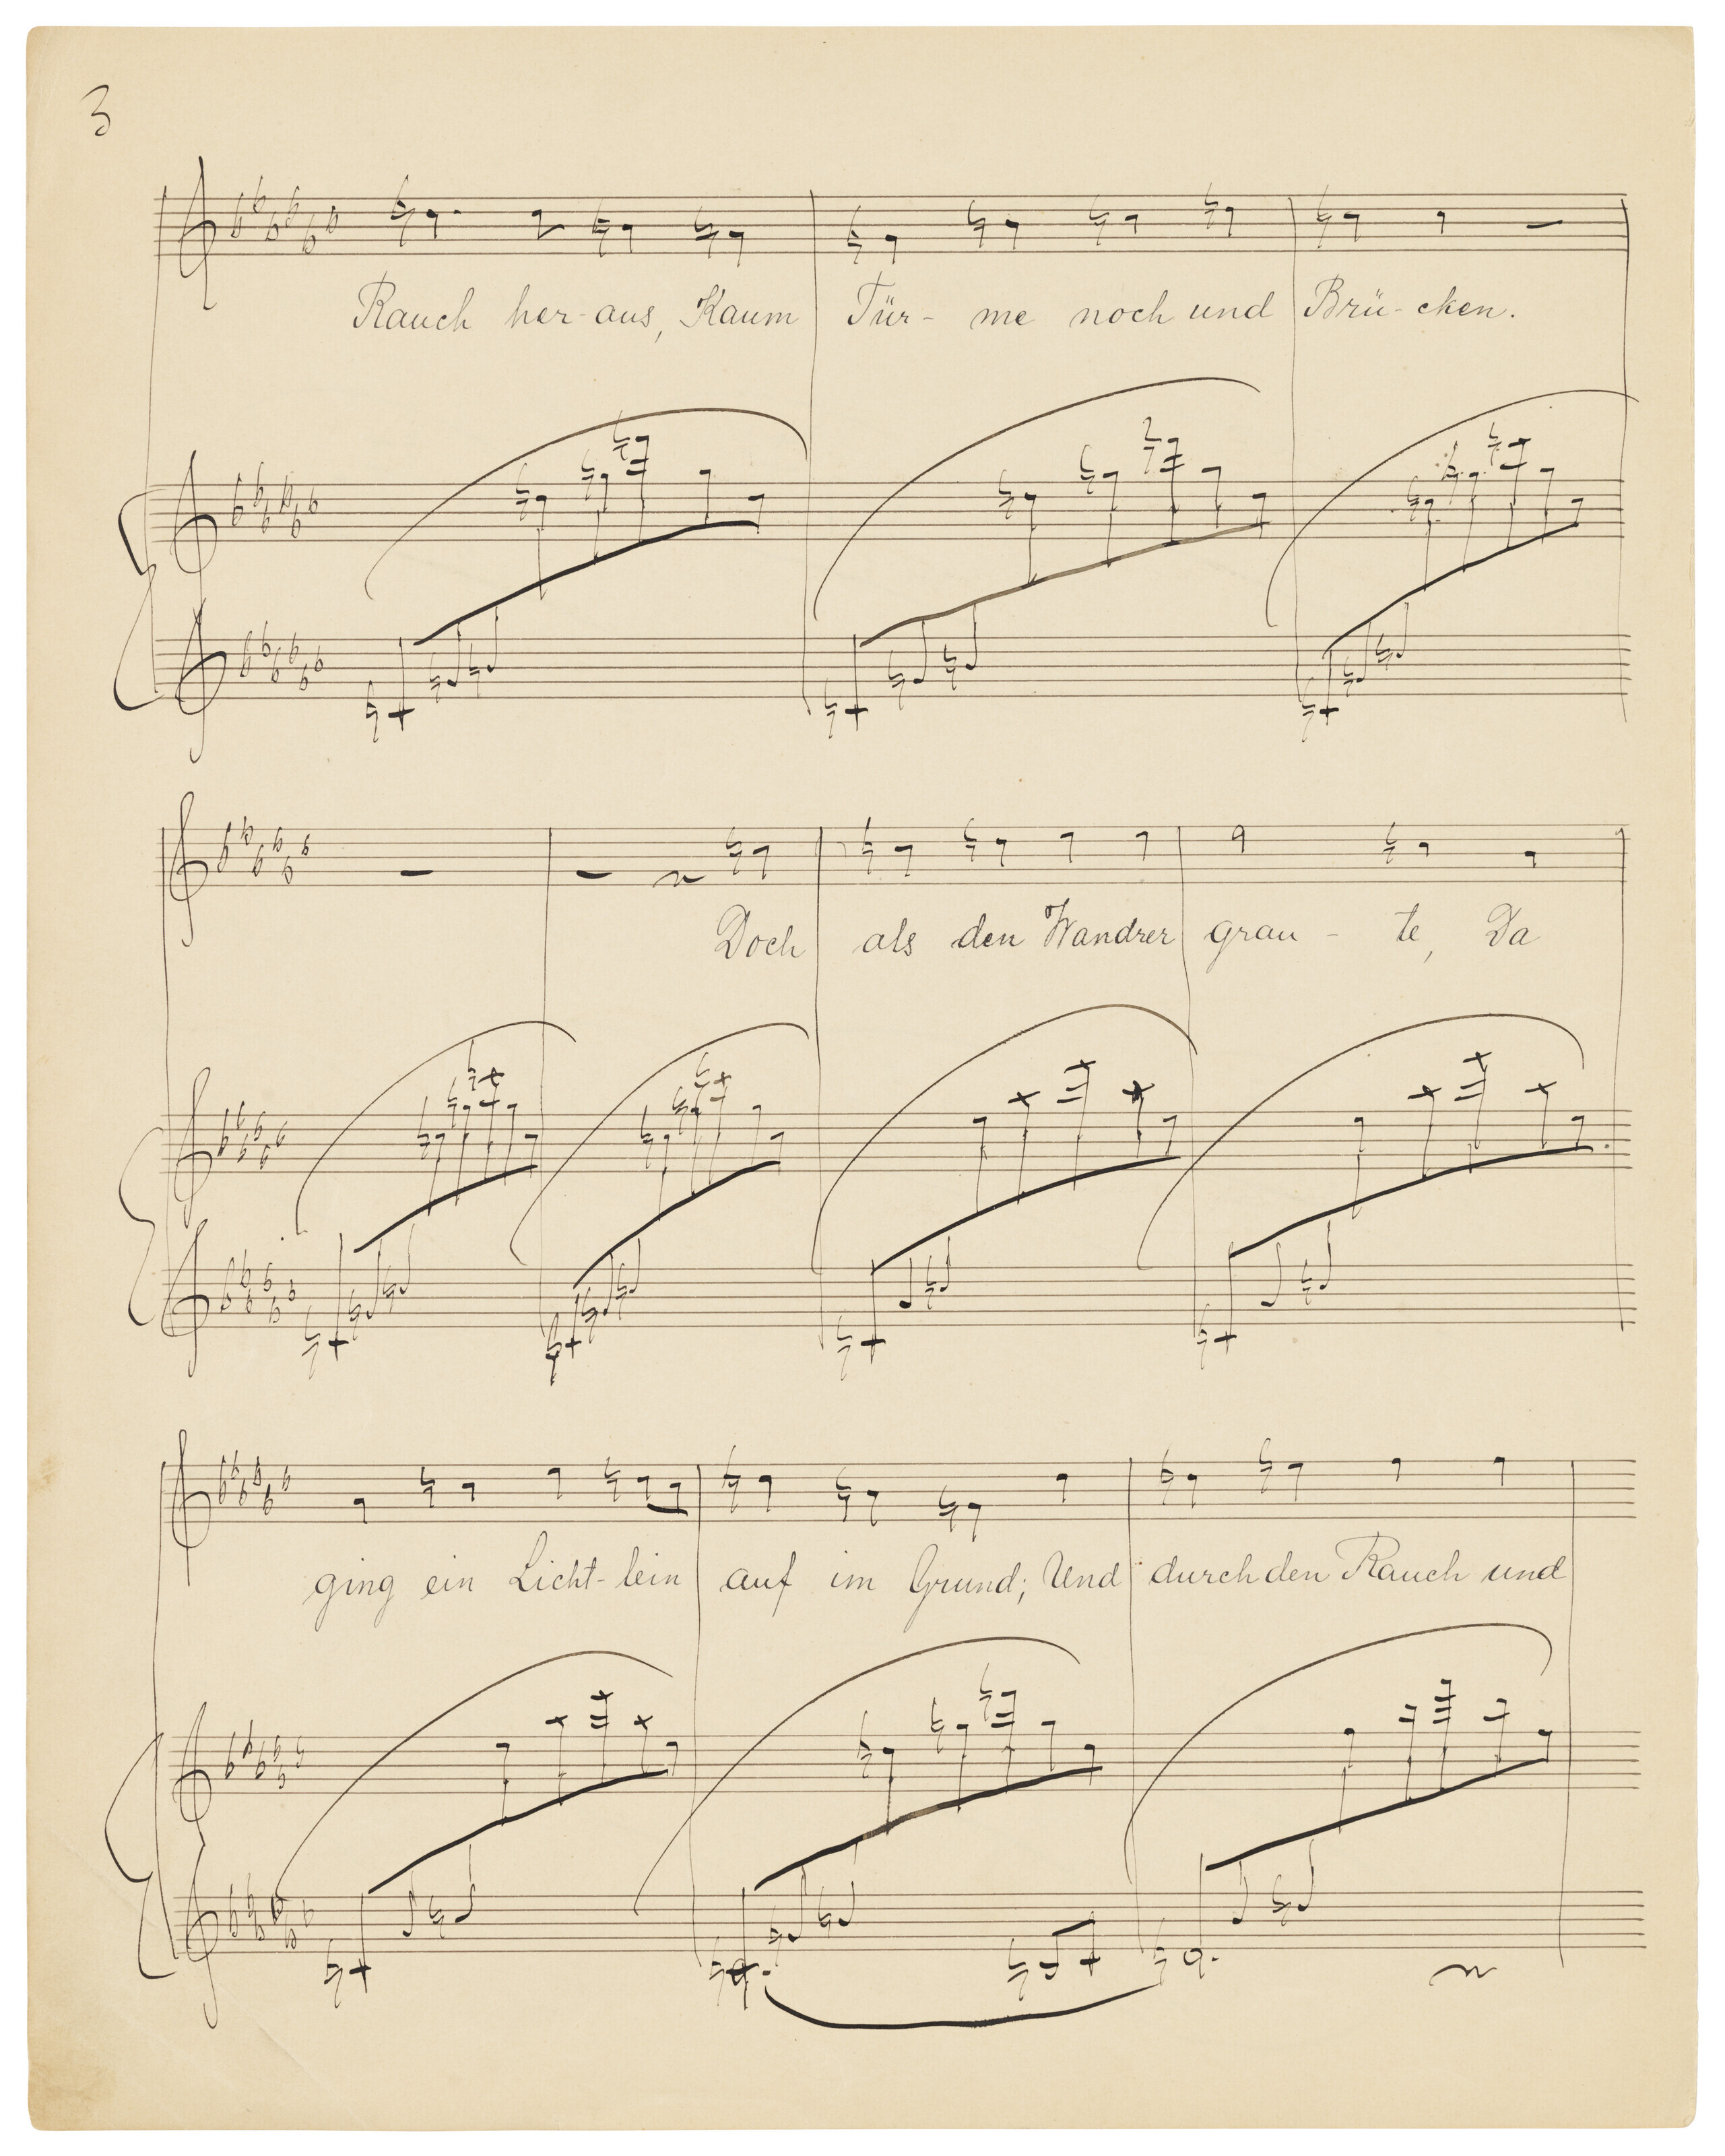 3
Rauch her-aus, Kaum Tür- me noch und Brü-cken.
Doch als den Wandrer grau - te, Da
ging ein Licht-lein auf im Grund; Und durch den Rauch und